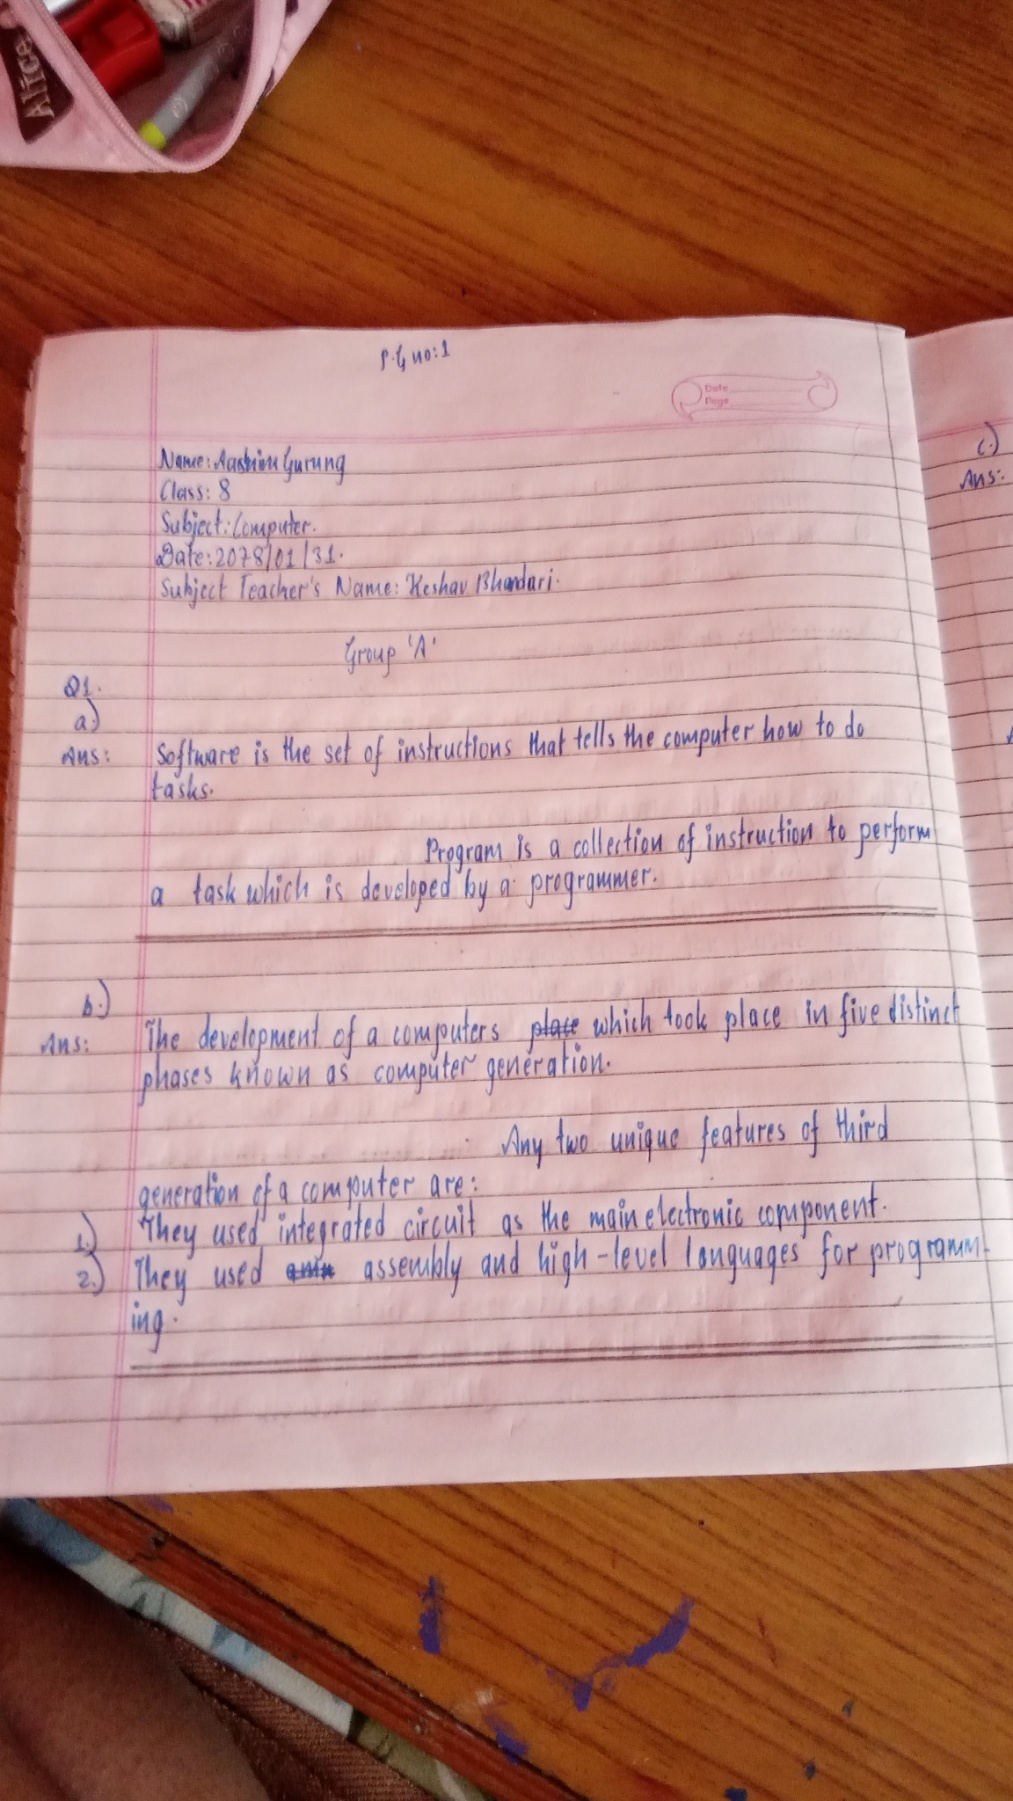 Alice
P.G no:1
Date
Page
Name: Aashim Gurung
Class: 8
Subject: Computer.
Date: 2078/01/31.
Subject Teacher's Name: Keshav Bhandari.
Group 'A'
Q1.
a.)
Ans: Software is the set of instructions that tells the computer how to do
tasks.
Program is a collection of instruction to perform
a task which is developed by a programmer.
b.)
Ans: The development of a computers place which took place in five distinct
phases known as computer generation.
Any two unique features of third
generation of a computer are:
1.) They used integrated circuit as the main electronic component.
2.) They used assembly and high-level languages for programm-
ing.
c.)
Ans: